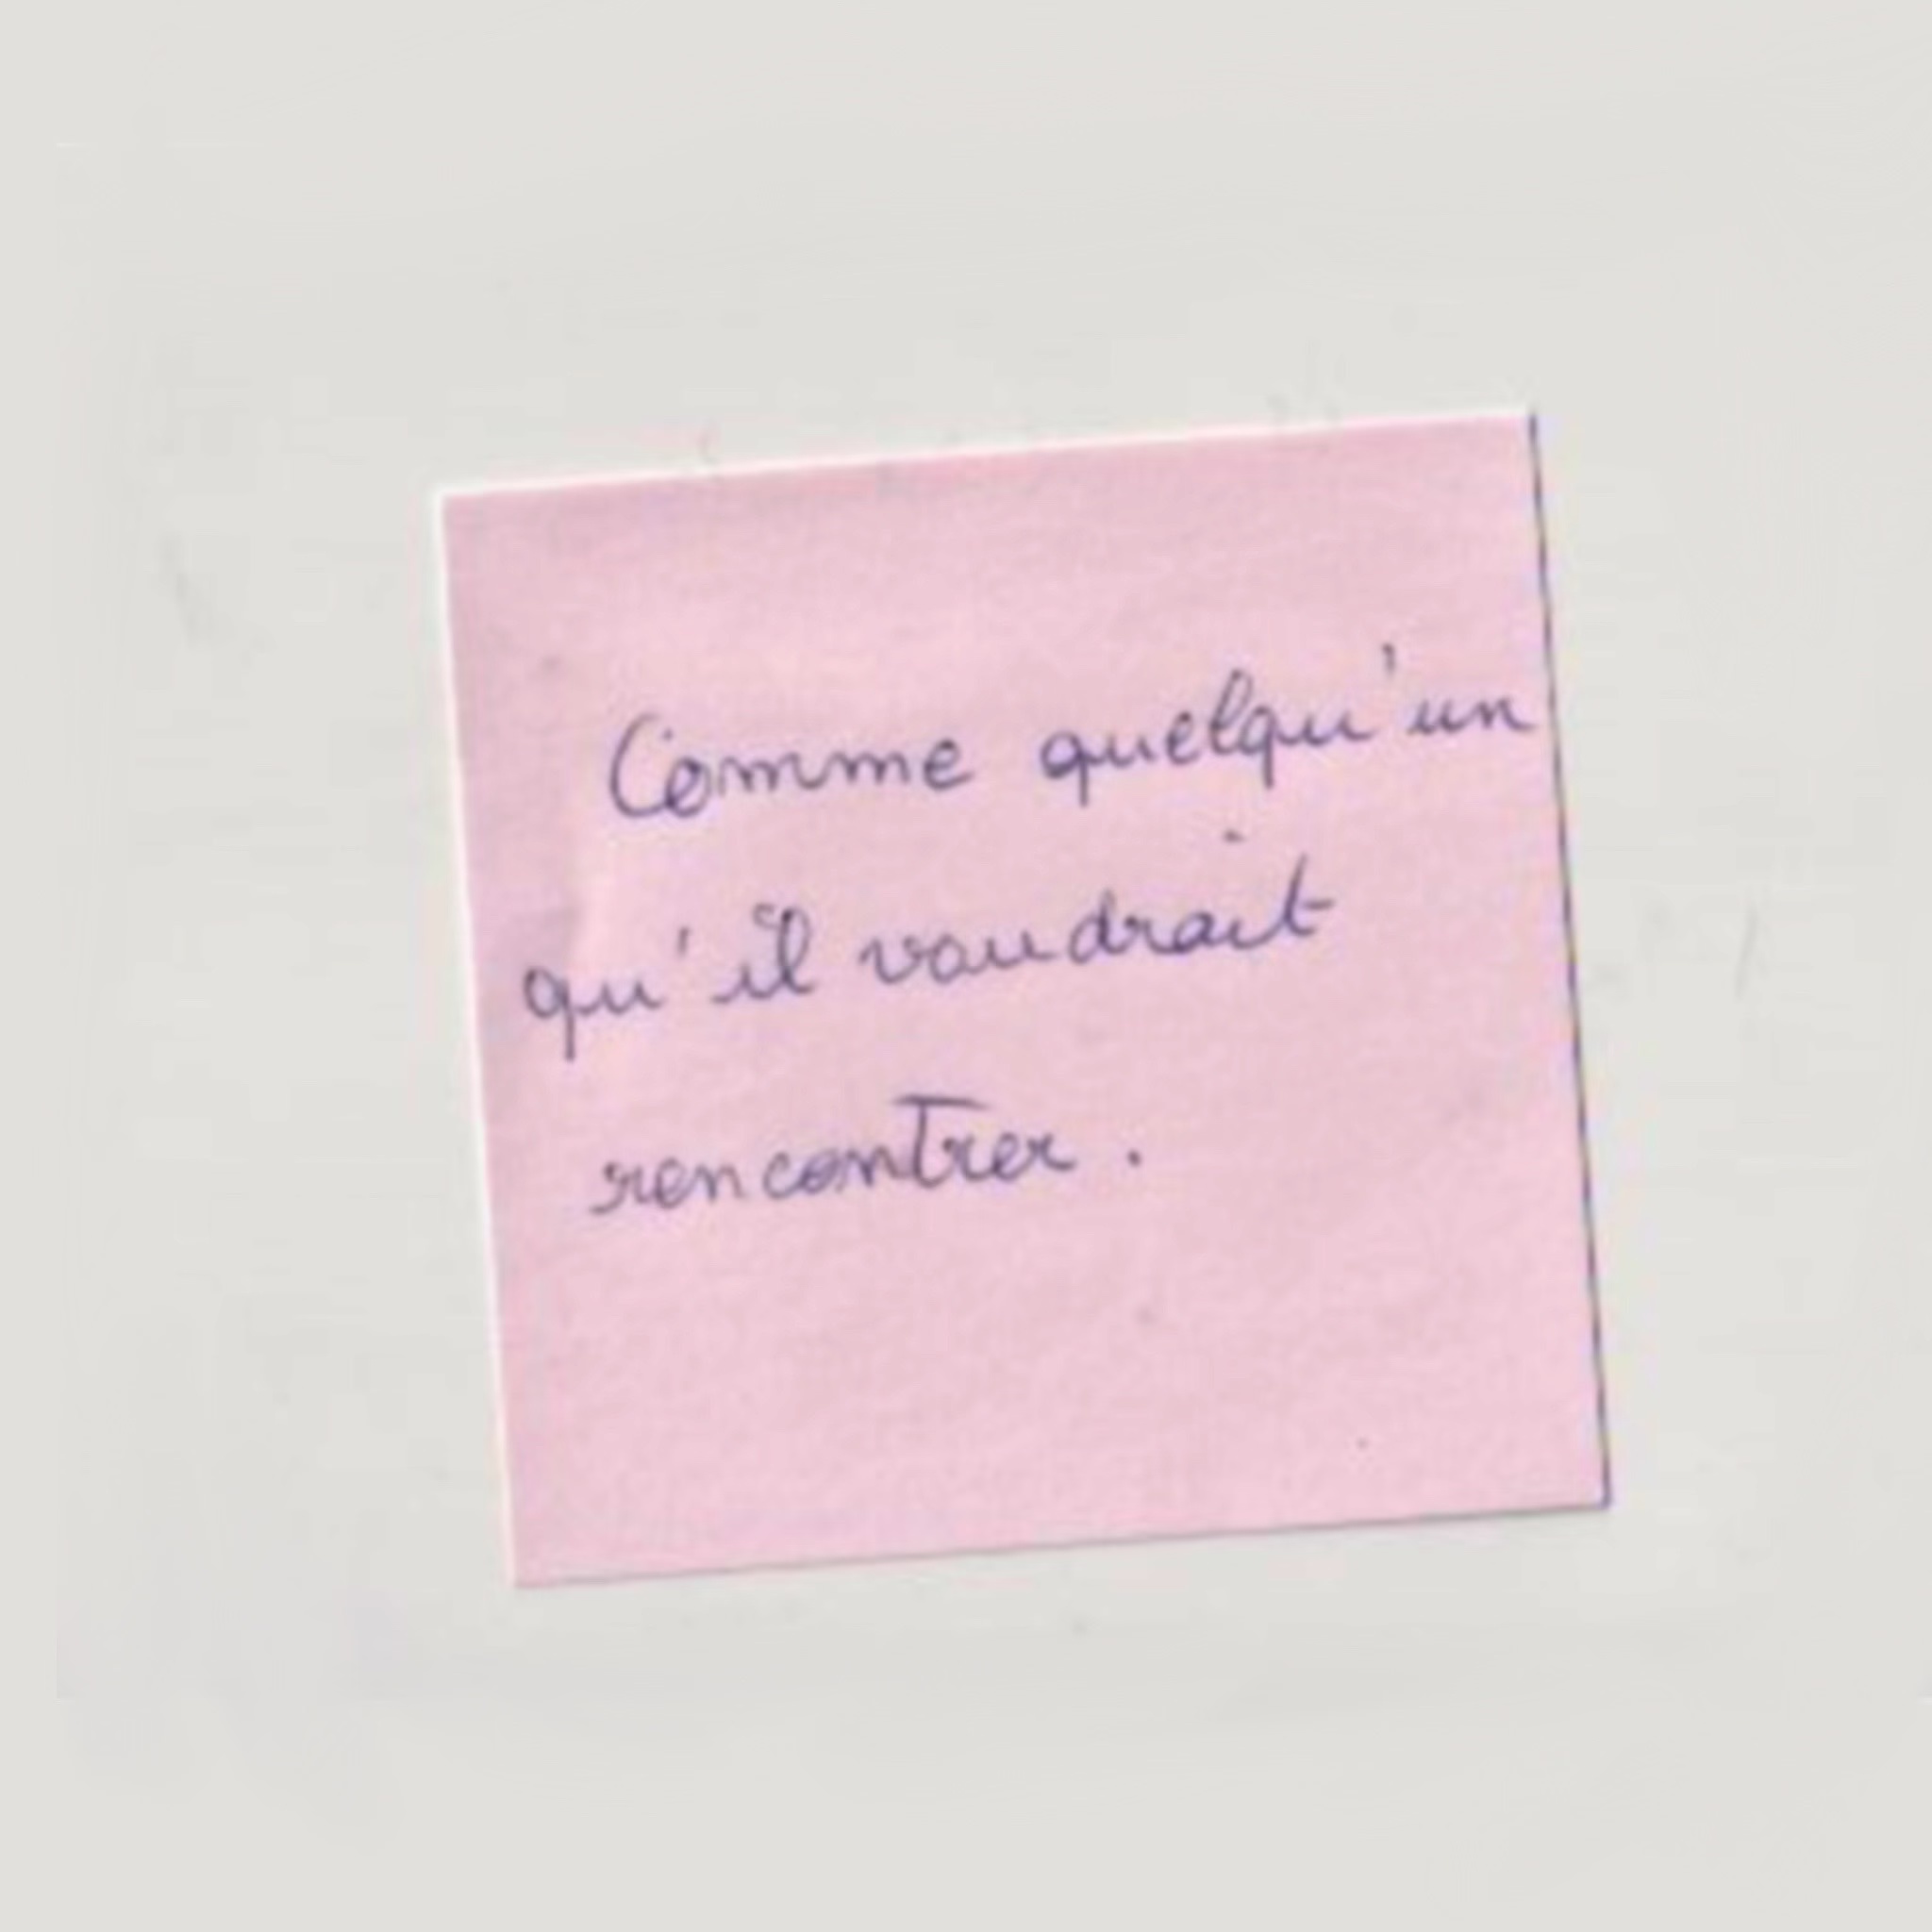 Comme quelqu'un
qu'il voudrait
rencontrer.